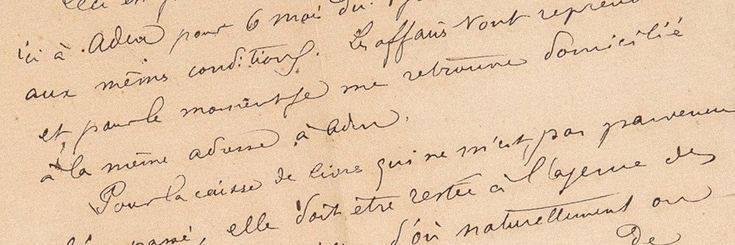 ici à Aden pour 6 mois du
aux mêmes conditions. Les affaires vont reprendre
et pour le moment je me retrouve domicilié
à la même adresse à Aden.
Pour la caisse de livres qui ne m'est pas parvenue
elle doit être restée à l'agence des
d'où naturellement on
de